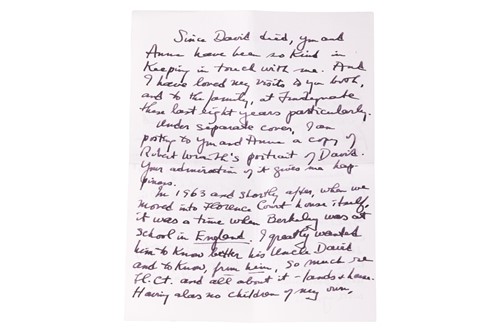 Since David died, you and
Anne have been so kind in
keeping in touch with me. And
I have loved my visits to you both,
and to the family, at
these last eight years particularly.
Under separate cover, I am
posting to you and Anne a copy of
Robert portrait of David.
Your admiration of it gives me hap
piness.
In 1963 and shortly after, when we
moved into Florence Court house itself,
it was a time when Berkeley was at
School in England. I greatly wanted
him to know better his Uncle David
and to know, from him, so much re
Fl. Ct. and all about it - lands & house.
Having alas no children of my own,